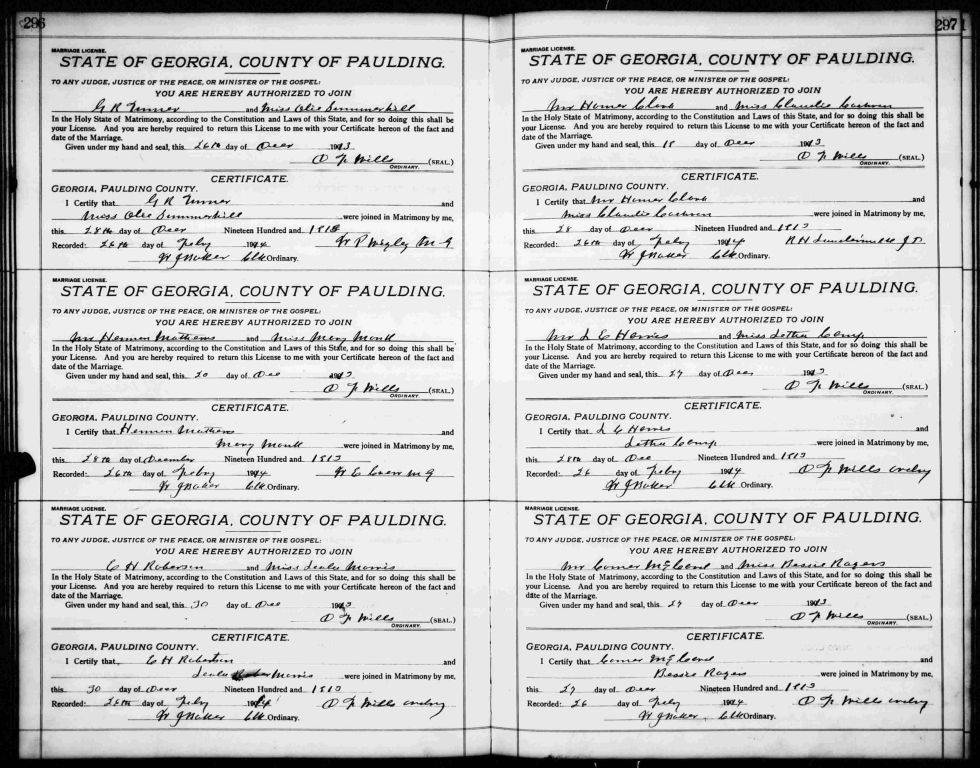 296
MARRIAGE LICENSE.
STATE OF GEORGIA, COUNTY OF PAULDING.
TO ANY JUDGE, JUSTICE OF THE PEACE, OR MINISTER OF THE GOSPEL:
YOU ARE HEREBY AUTHORIZED TO JOIN
G R Turner and Miss Olie Summerhill
In the Holy State of Matrimony, according to the Constitution and Laws of this State, and for so doing this shall be
your License. And you are hereby required to return this License to me with your Certificate hereon of the fact and
date of the Marriage.
Given under my hand and seal, this 26th day of Decr 1913
O F Mills (SEAL.)
ORDINARY.
CERTIFICATE.
GEORGIA, PAULDING COUNTY.
I Certify that G R Turner and
Miss Olie Summerhill were joined in Matrimony by me,
this 28th day of Decr Nineteen Hundred and 1913
Recorded: 26th day of Feby 1914 W P Wigley M G
W J Baker Clk Ordinary.
MARRIAGE LICENSE.
STATE OF GEORGIA, COUNTY OF PAULDING.
TO ANY JUDGE, JUSTICE OF THE PEACE, OR MINISTER OF THE GOSPEL:
YOU ARE HEREBY AUTHORIZED TO JOIN
Mr Hermon Mathews and Miss Mary Monk
In the Holy State of Matrimony, according to the Constitution and Laws of this State, and for so doing this shall be
your License. And you are hereby required to return this License to me with your Certificate hereon of the fact and
date of the Marriage.
Given under my hand and seal, this 20 day of Dec 1913
O F Mills (SEAL.)
ORDINARY.
CERTIFICATE.
GEORGIA, PAULDING COUNTY.
I Certify that Hermon Mathews and
Mary Monk were joined in Matrimony by me,
this 28th day of December Nineteen Hundred and 1913
Recorded: 26th day of Feby 1914 W C M G
W J Baker Clk Ordinary.
MARRIAGE LICENSE.
STATE OF GEORGIA, COUNTY OF PAULDING.
TO ANY JUDGE, JUSTICE OF THE PEACE, OR MINISTER OF THE GOSPEL:
YOU ARE HEREBY AUTHORIZED TO JOIN
C H Roberson and Miss Morris
In the Holy State of Matrimony, according to the Constitution and Laws of this State, and for so doing this shall be
your License. And you are hereby required to return this License to me with your Certificate hereon of the fact and
date of the Marriage.
Given under my hand and seal, this 30 day of Dec 1913
O F Mills (SEAL.)
ORDINARY.
CERTIFICATE.
GEORGIA, PAULDING COUNTY.
I Certify that C H Robertson and
Morris were joined in Matrimony by me,
this 30 day of Decr Nineteen Hundred and 1913
Recorded: 26th day of Feby 1914 O F Mills ordry
W J Baker Clk Ordinary.
297
MARRIAGE LICENSE.
STATE OF GEORGIA, COUNTY OF PAULDING.
TO ANY JUDGE, JUSTICE OF THE PEACE, OR MINISTER OF THE GOSPEL:
YOU ARE HEREBY AUTHORIZED TO JOIN
Mr Homer Clark and Miss Claudie Cochran
In the Holy State of Matrimony, according to the Constitution and Laws of this State, and for so doing this shall be
your License. And you are hereby required to return this License to me with your Certificate hereon of the fact and
date of the Marriage.
Given under my hand and seal, this 18 day of Decr 1913
O F Mills (SEAL.)
ORDINARY.
CERTIFICATE.
GEORGIA, PAULDING COUNTY.
I Certify that Mr Homer Clark and
Miss Claudie Cochran were joined in Matrimony by me,
this 28 day of Decr Nineteen Hundred and 1913
Recorded: 26th day of Feby 1914 R H J P
W J Baker Clk Ordinary.
MARRIAGE LICENSE.
STATE OF GEORGIA, COUNTY OF PAULDING.
TO ANY JUDGE, JUSTICE OF THE PEACE, OR MINISTER OF THE GOSPEL:
YOU ARE HEREBY AUTHORIZED TO JOIN
Mr L C Harris and Miss Letha Camp
In the Holy State of Matrimony, according to the Constitution and Laws of this State, and for so doing this shall be
your License. And you are hereby required to return this License to me with your Certificate hereon of the fact and
date of the Marriage.
Given under my hand and seal, this 27 day of Decr 1913
O F Mills (SEAL.)
ORDINARY.
CERTIFICATE.
GEORGIA, PAULDING COUNTY.
I Certify that L C Harris and
Letha Camp were joined in Matrimony by me,
this 28th day of Dec Nineteen Hundred and 1913
Recorded: 26 day of Feby 1914 O F Mills ordry
W J Baker Clk Ordinary.
MARRIAGE LICENSE.
STATE OF GEORGIA, COUNTY OF PAULDING.
TO ANY JUDGE, JUSTICE OF THE PEACE, OR MINISTER OF THE GOSPEL:
YOU ARE HEREBY AUTHORIZED TO JOIN
Mr Comer McCord and Miss Bessie Ragers
In the Holy State of Matrimony, according to the Constitution and Laws of this State, and for so doing this shall be
your License. And you are hereby required to return this License to me with your Certificate hereon of the fact and
date of the Marriage.
Given under my hand and seal, this 27 day of Decr 1913
O F Mills (SEAL.)
ORDINARY.
CERTIFICATE.
GEORGIA, PAULDING COUNTY.
I Certify that Comer McCord and
Bessie Ragers were joined in Matrimony by me,
this 27 day of Decr Nineteen Hundred and 1913
Recorded: 26 day of Feby 1914 O F Mills ordry
W J Baker Clk Ordinary.